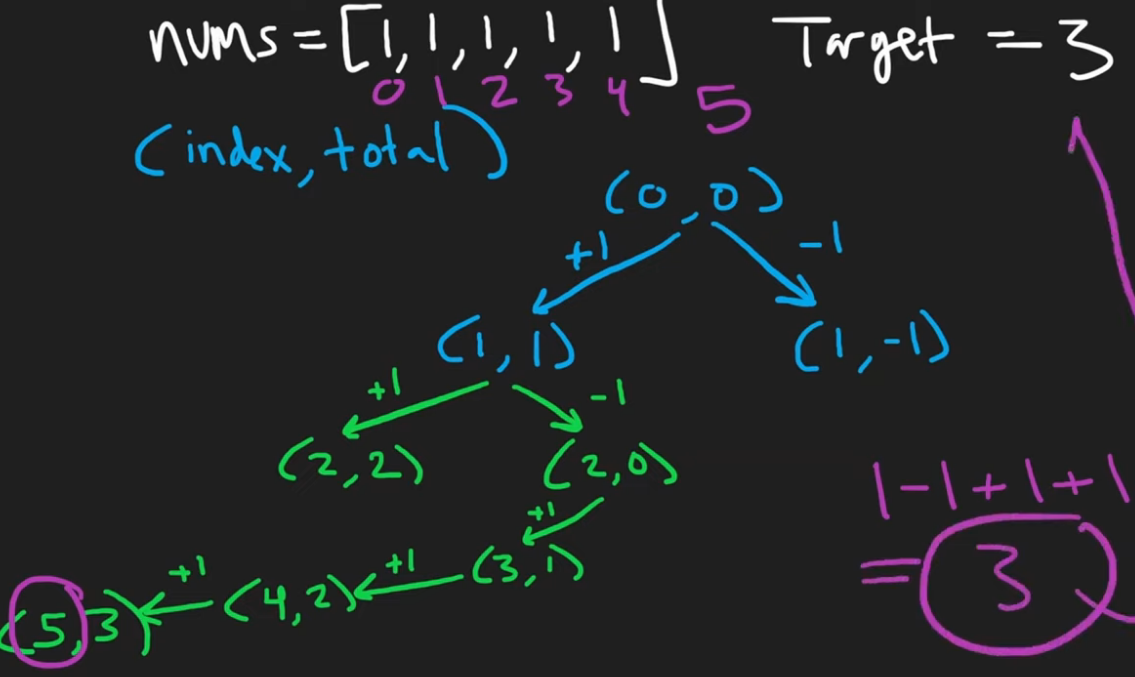 nums = [1, 1, 1, 1, 1] Target = 3
0 1 2 3 4 5
(index, total)
(0, 0)
+1 -1
(1, 1) (1, -1)
+1 -1
(2, 2) (2, 0)
1-1+1+1
+1
(3, 1)
= 3
+1 +1
(5, 3) (4, 2)